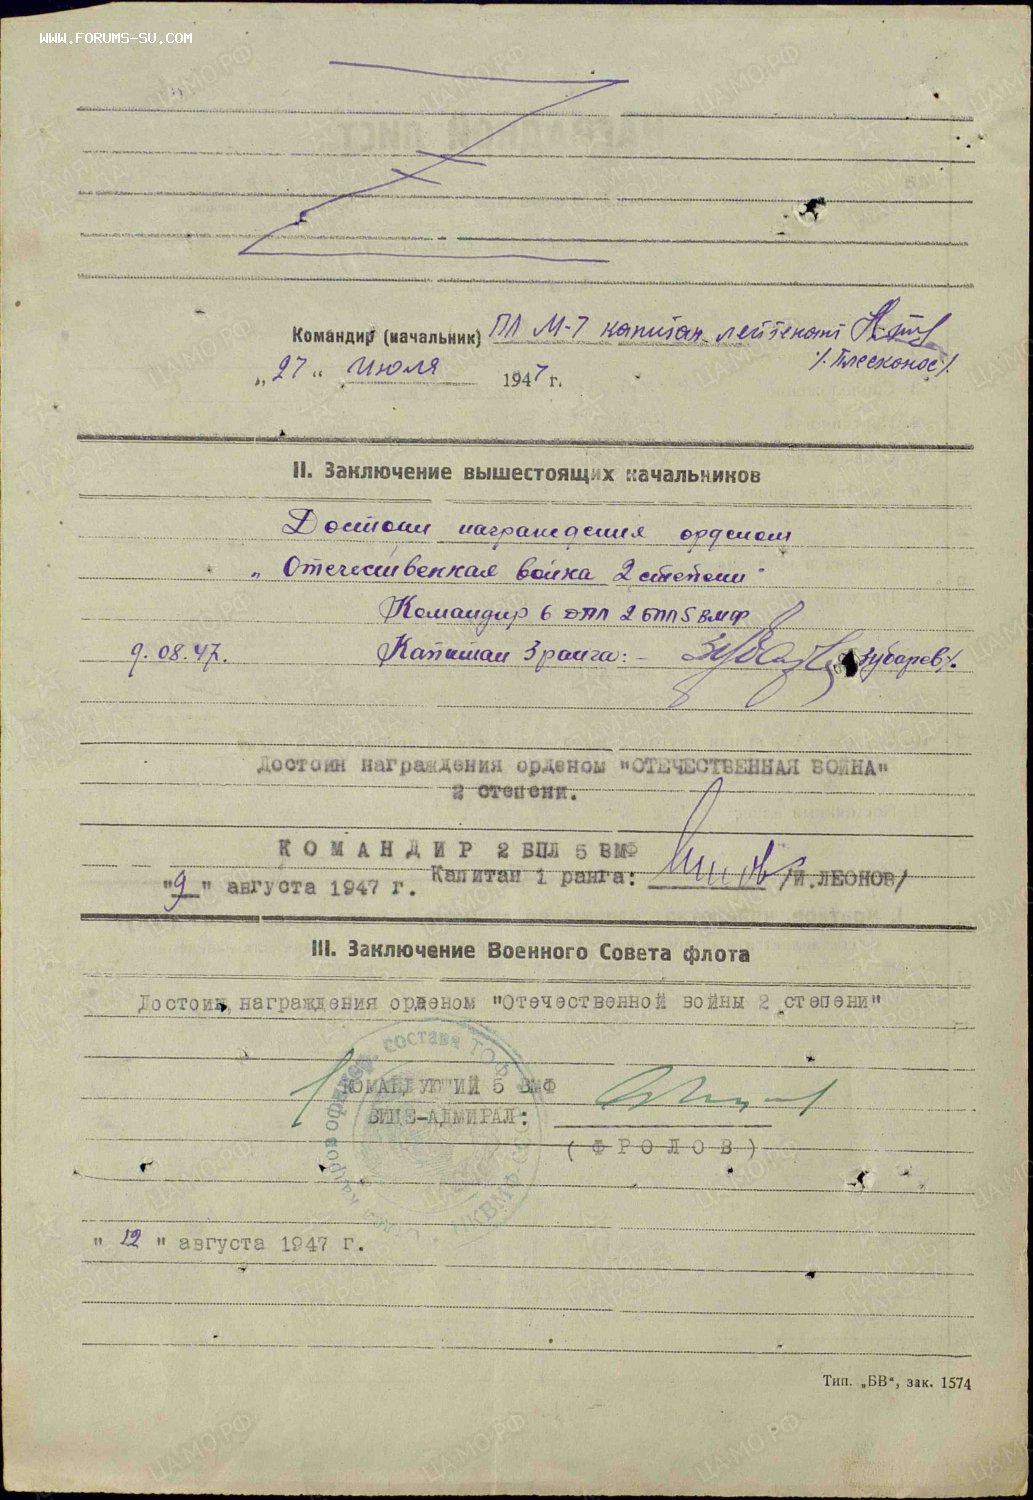 WWW.FORUMS-SU.COM
Командир (начальник) ПЛ М-7 капитан-лейтенант
/Плесконос/
„27" Июля 1947 г.
II. Заключение вышестоящих начальников
Достоин награждения орденом
„Отечественная война 2 степени"
Командир 6 ДПЛ 2 БПЛ 5 ВМФ
9.08.47. Капитан 3 ранга: – Зубарев/.
Достоин награждения орденом "ОТЕЧЕСТВЕННАЯ ВОЙНА"
2 степени.
КОМАНДИР 2 БПЛ 5 ВМФ
"9" августа 1947 г. Капитан 1 ранга: /И.ЛЕОНОВ/
III. Заключение Военного Совета флота
Достоин награждения орденом "Отечественной войны 2 степени"
КОМАНДУЮЩИЙ 5 ВМФ
ВИЦЕ-АДМИРАЛ:
(ФРОЛОВ)
"12" августа 1947 г.
Тип. „БВ", зак. 1574